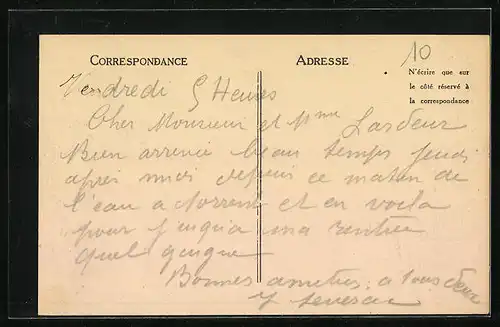 CORRESPONDANCE
ADRESSE
10
N'écrire que sur
le côté réservé à
la correspondance
Vendredi 5 Heures
Cher Monsieur et Mme
Bien arrivée beau temps jeudi
après midi depuis ce matin de
l'eau a torrent et en voila
pour jusqua ma rentrée
quel guigne
Bonnes amities a tous deux